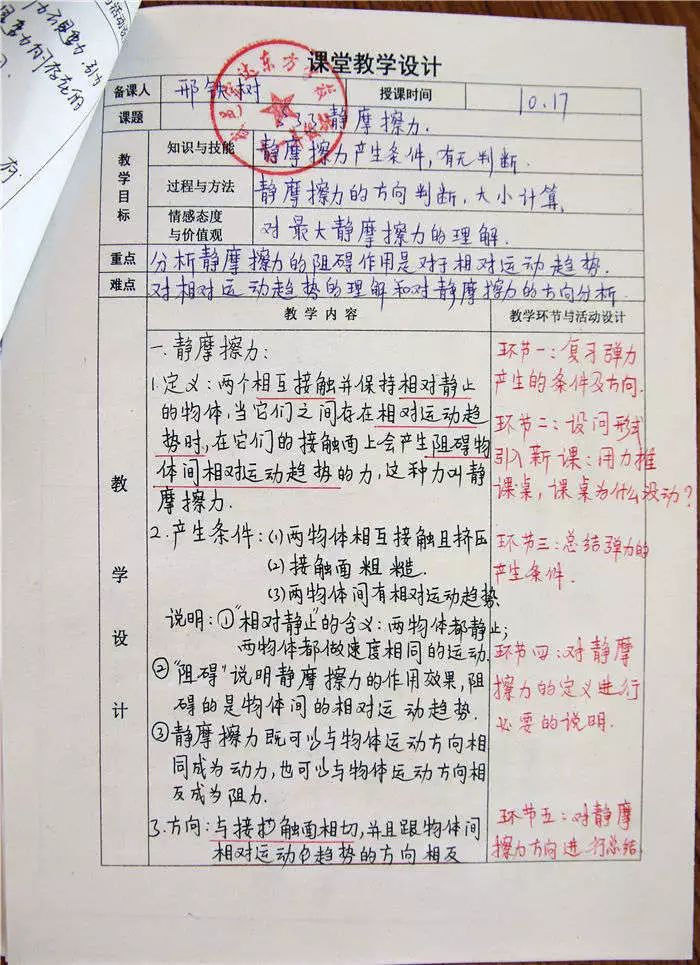 课堂教学设计
备课人 邢铁树 授课时间 10.17
课题 3.3 静摩擦力.
教学目标 知识与技能 静摩擦力产生条件,有无判断.
过程与方法 静摩擦力的方向判断,大小计算.
情感态度与价值观 对最大静摩擦力的理解.
重点 分析静摩擦力的阻碍作用是对于相对运动趋势.
难点 对相对运动趋势的理解和对静摩擦力的方向分析.
教学内容 教学环节与活动设计
教学设计
一.静摩擦力:
1.定义:两个相互接触并保持相对静止
的物体,当它们之间存在相对运动趋
势时,在它们的接触面上会产生阻碍物
体间相对运动趋势的力,这种力叫静
摩擦力.
2.产生条件:(1)两物体相互接触且挤压
(2)接触面粗糙.
(3)两物体间有相对运动趋势.
说明:①"相对静止"的含义:两物体都静止;
两物体都做速度相同的运动.
②"阻碍"说明静摩擦力的作用效果,阻
碍的是物体间的相对运动趋势.
③静摩擦力既可以与物体运动方向相
同成为动力,也可以与物体运动方向相
反成为阻力.
3.方向:与接触面相切,并且跟物体间
相对运动趋势的方向相反
环节一:复习弹力
产生的条件及方向.
环节二:设问形式
引入新课:用力推
课桌,课桌为什么没动?
环节三:总结弹力的
产生条件.
环节四:对静摩
擦力的定义进行
必要的说明.
环节五:对静摩
擦力方向进行总结.